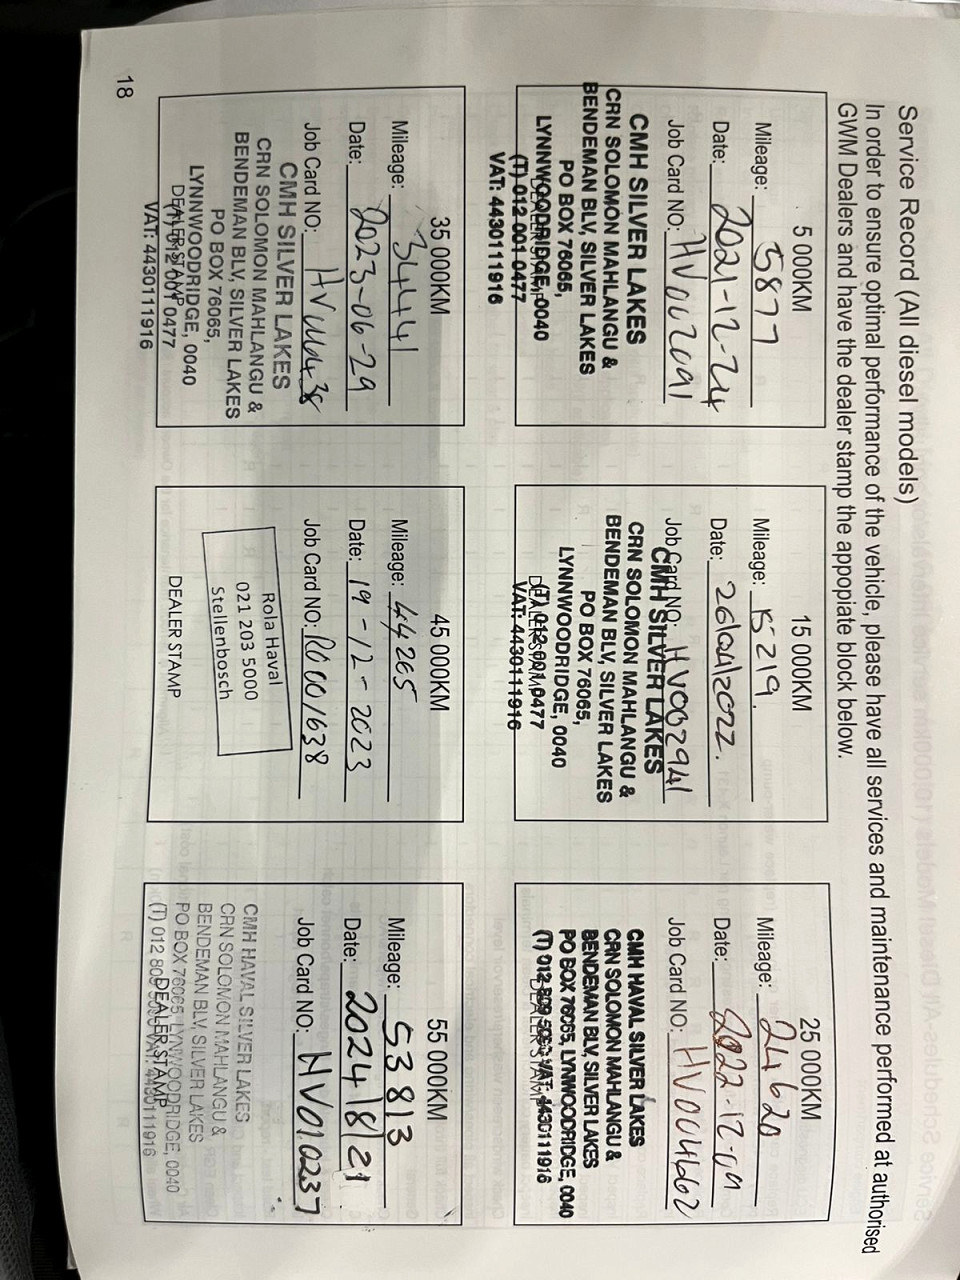 Service Record (All diesel models)
In order to ensure optimal performance of the vehicle, please have all services and maintenance performed at authorised
GWM Dealers and have the dealer stamp the appopiate block below.
5 000KM
Mileage: 5877
Date: 2021-12-24
Job Card NO:
CMH SILVER LAKES
CRN SOLOMON MAHLANGU &
BENDEMAN BLV, SILVER LAKES
PO BOX 76065,
LYNNWOODRIDGE, 0040
(T) 012 001 0477
VAT: 4430111916
15 000KM
Mileage: 15219.
Date: 26/04/2022.
Job Card NO: HV002941
CMH SILVER LAKES
CRN SOLOMON MAHLANGU &
BENDEMAN BLV, SILVER LAKES
PO BOX 76065,
LYNNWOODRIDGE, 0040
(T) 012 001 0477
VAT: 4430111916
25 000KM
Mileage: 24620
Date: 2022-12-09
Job Card NO: HV004662
CMH HAVAL SILVER LAKES
CRN SOLOMON MAHLANGU &
BENDEMAN BLV, SILVER LAKES
PO BOX 76065, LYNWOODRIDGE, 0040
(T) 012 809 VAT: 4430111916
DEALER STAMP
35 000KM
Mileage: 34441
Date: 2023-06-29
Job Card NO:
CMH SILVER LAKES
CRN SOLOMON MAHLANGU &
BENDEMAN BLV, SILVER LAKES
PO BOX 76065,
LYNNWOODRIDGE, 0040
DEALER STAMP
(T) 012 001 0477
VAT: 443011916
45 000KM
Mileage: 44265
Date: 19-12-2023
Job Card NO: R0001638
Rola Haval
021 203 5000
Stellenbosch
DEALER STAMP
55 000KM
Mileage: 53813
Date: 2024/8/21
Job Card NO: HV010237
CMH HAVAL SILVER LAKES
CRN SOLOMON MAHLANGU &
BENDEMAN BLV, SILVER LAKES
PO BOX 76065 LYNWOODRIDGE, 0040
(T) 012 809 VAT: 4430111916
DEALER STAMP
18